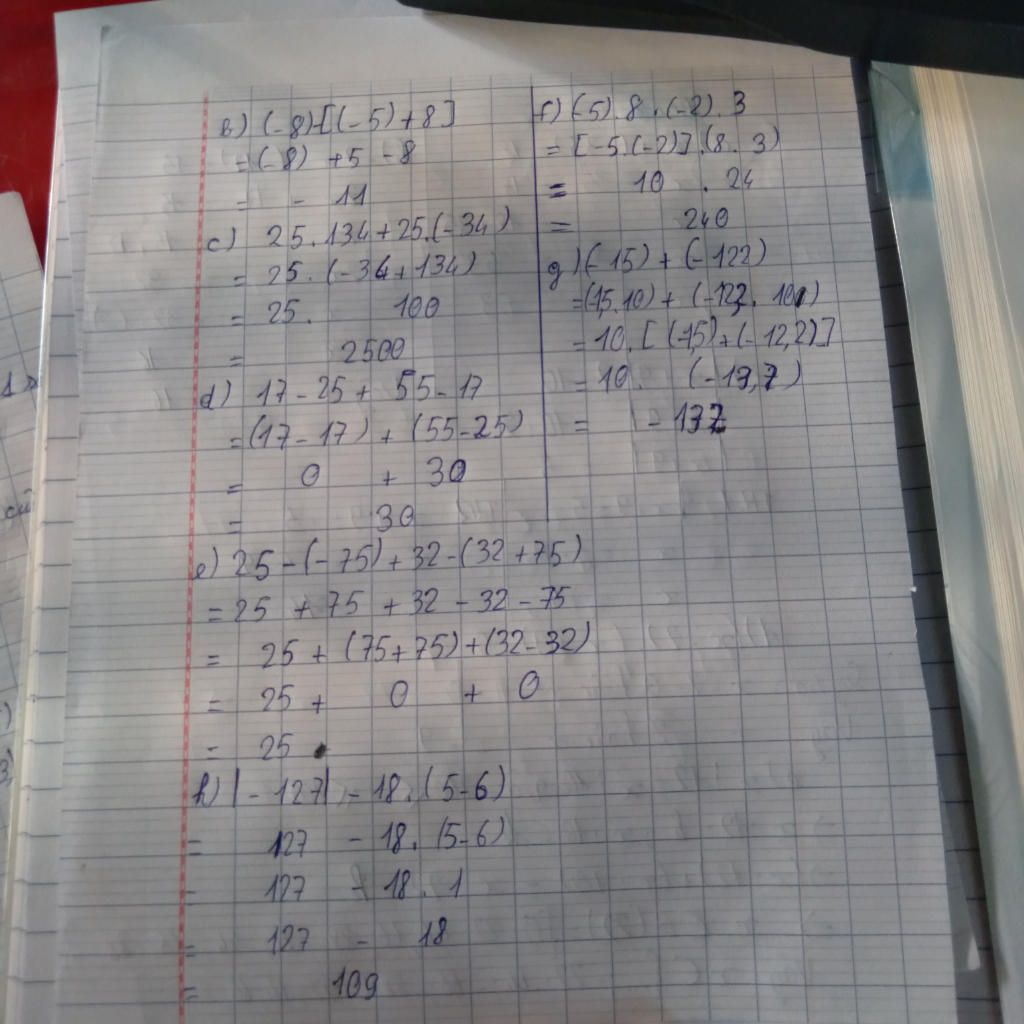 b) (-8)-[(-5)+8]
= (-8) +5 -8
= - 11
c) 25.134+25.(-34)
= 25.(-34+134)
= 25. 100
= 2500
d) 17-25+ 55-17
=(17-17) + (55-25)
= 0 + 30
= 30
e) 25-(-75)+32-(32+75)
= 25 + 75 + 32 - 32 - 75
= 25 + (75+75)+(32-32)
= 25 + 0 + 0
= 25
h) |-127| - 18.(5-6)
= 127 - 18.(5-6)
= 127 - 18. 1
= 127 - 18
= 109
f) (-5).8.(-2).3
= [-5.(-2)].(8.3)
= 10 . 24
= 240
g) (-15) + (-122)
=(1,5.10) + (-12,2. 10)
= 10.[(-1,5)+(-12,2)]
= 10. (-13,7)
= -137